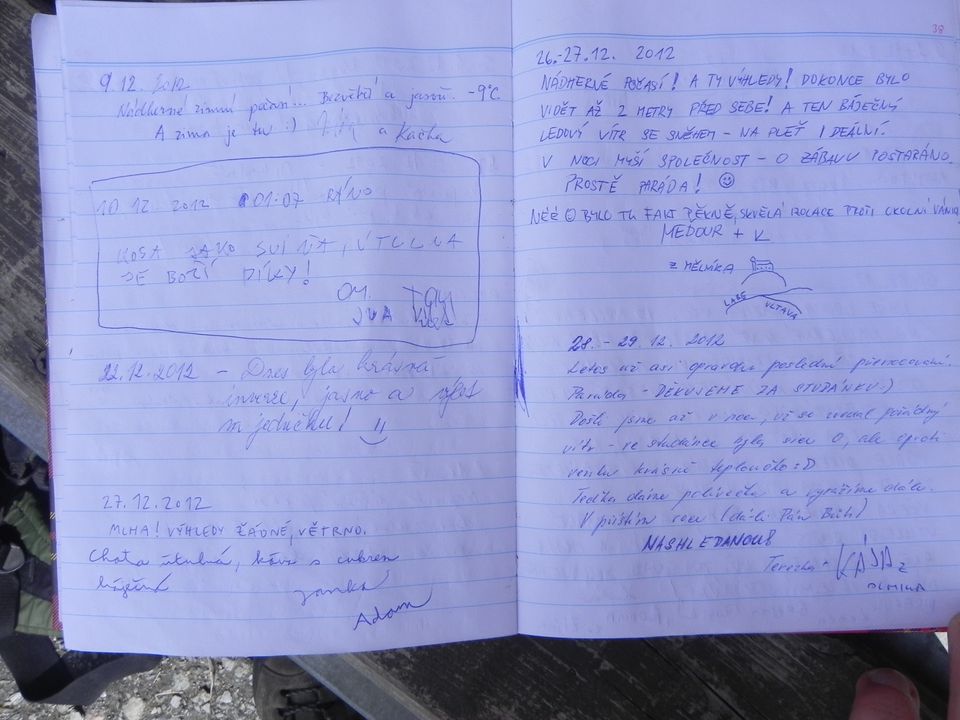 9.12. 2012
Nádherné zimní počasí... Bezvětří a jasno. -9°C.
A zima je tu :) a Kačka
10.12 2012 01:07 RÁNO
KOSA JAKO SVIŇA, ÚTULNA
JE BOŽÍ DÍKY!
22.12.2012 – Dnes byla krásná
inverze, jasno a výlet
na jedničku!
27.12.2012
MLHA! VÝHLEDY ŽÁDNÉ, VĚTRNO.
Chata útulná, káva s cukrem
báječná Janka
Adam
38
26.-27.12. 2012
NÁDHERNÉ POČASÍ! A TY VÝHLEDY! DOKONCE BYLO
VIDĚT AŽ 2 METRY PŘED SEBE! A TEN BÁJEČNÝ
LEDOVÝ VÍTR SE SNĚHEM – NA PLEŤ IDEÁLNÍ.
V NOCI MYŠÍ SPOLEČNOST – O ZÁBAVU POSTARÁNO.
PROSTĚ PARÁDA! ☺
BYLO TU FAKT PĚKNĚ, SKVĚLÁ IZOLACE PROTI OKOLNÍ
MEDOUR + K
Z MĚLNÍKA
LABE
VLTAVA
28. - 29.12. 2012
Letos už asi opravdu poslední přenocování.
Paráda - DĚKUJEME ZA STUDÁNKU :)
Došli jsme až v noci, už se zvedal pořádný
vítr - ve studánce byly sice 0, ale oproti
venku krásně teploučko :D
Teďka dáme polívečku a vyrážíme dále.
V příštím roce (dá-li Pán Bůh)
NASHLEDANOU!
Terezka + KÁJA z